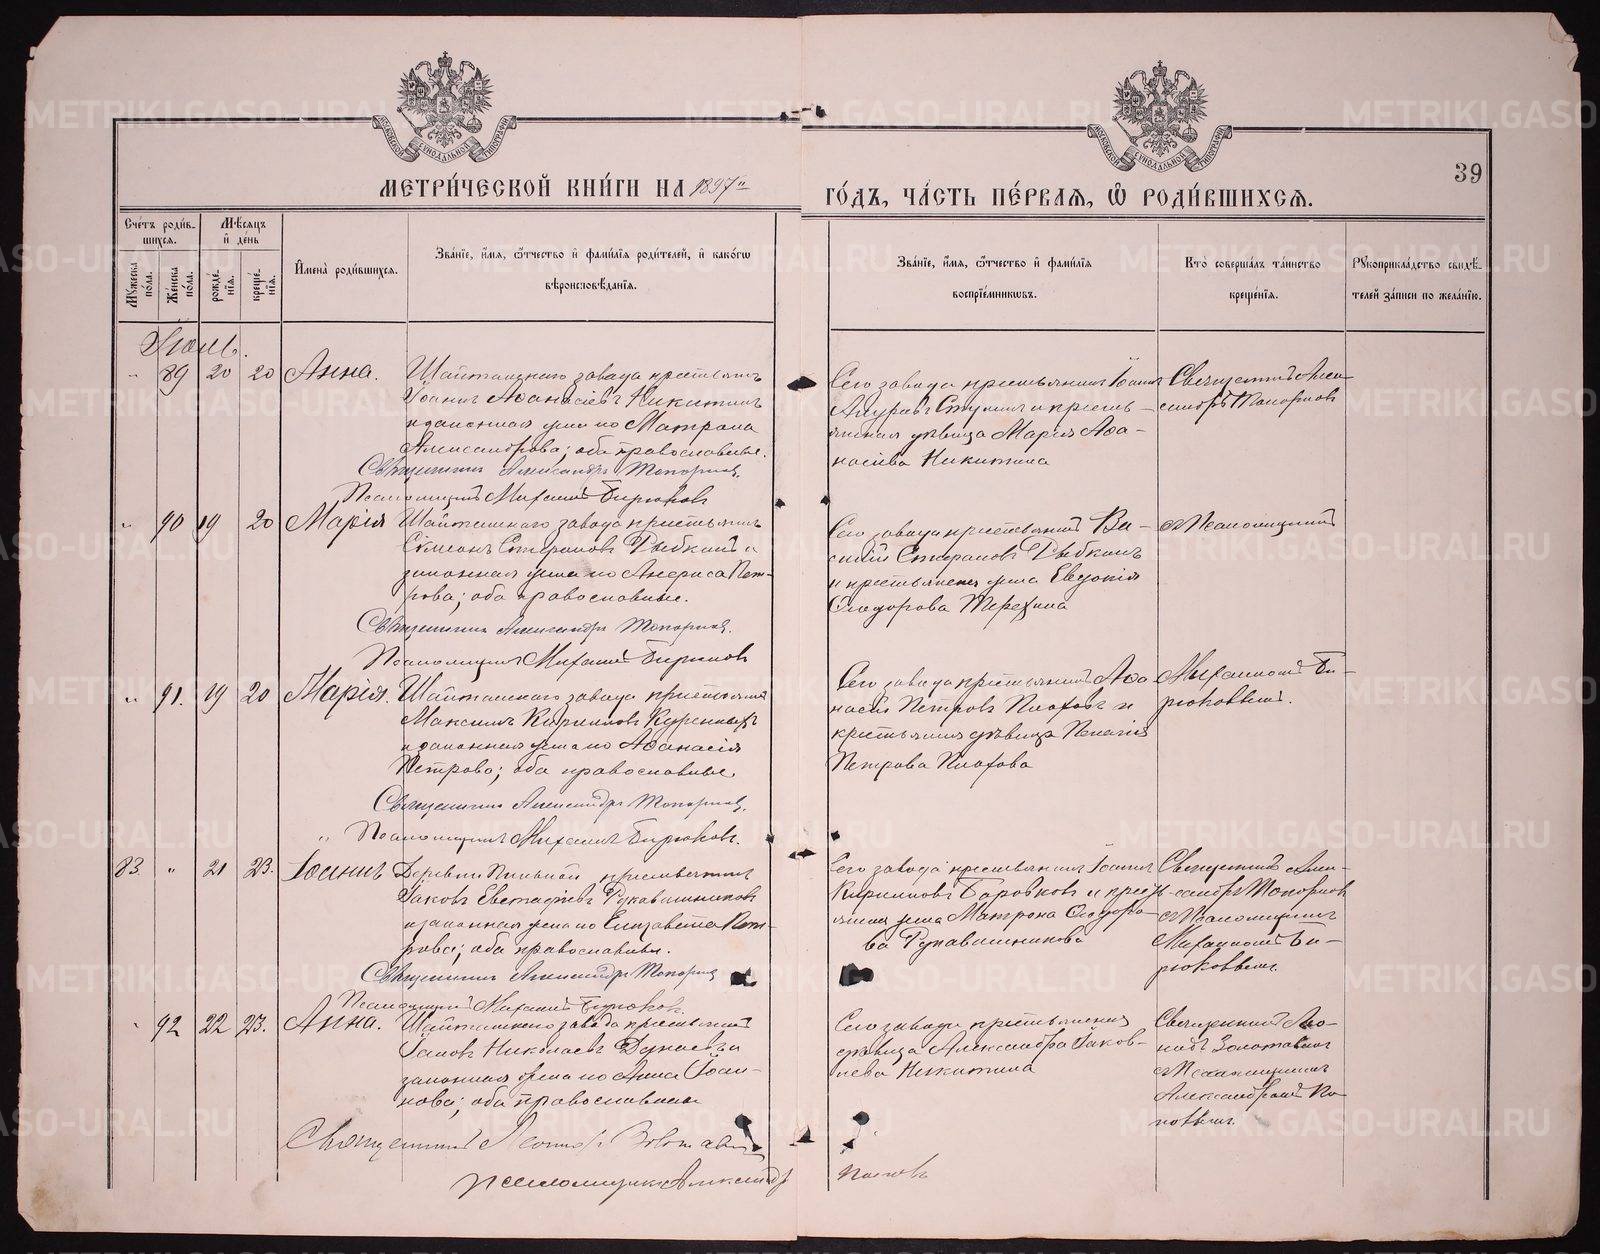 МЕТРИ́ЧЕСКОЙ КНИ́ГИ НА 1897
ГО́ДЪ, ЧА́СТЬ ПЕ́РВАЯ, Ѽ РОДИ́ВШИХСЯ.
39
Сче́тъ роди́в-
шихся.
Мѣ́сяцъ
и҆ де́нь
Мꙋ́жеска по́ла.
Же́нска по́ла.
рожде́-
нїѧ.
креще́-
нїѧ.
И҆мена̀ роди́вшихсѧ.
Зва́нїе, и҆́мѧ, ѻ҆́тчество и҆ фами́лїѧ роди́телей, и҆ како́гѡ
вѣроисповѣ́данїѧ.
Зва́нїе, и҆́мѧ, ѻ҆́тчество и҆ фами́лїѧ
воспрїе́мникѡвъ.
Кто̀ соверша́лъ та́инство
креще́нїѧ.
Рꙋкоприкла́дство свидѣ́-
телей за́писи по жела́нїю.
Іюль.
89 20 20 Анна.
Шайтанскаго завода крестьянинъ
Іоаннъ Аѳанасіевъ Никитинъ
и законная жена его Матрона
Александрова; оба православные.
Священникъ Александръ Топорковъ.
Псаломщикъ Михаилъ Бирюковъ
Сего завода крестьянинъ Іоаннъ
и кресть-
янская дѣвица Марія Аѳа-
насіева Никитина
Священникъ Алек-
сандръ Топорковъ
90 19 20 Марія
Шайтанскаго завода крестьянинъ
Симеонъ Стефановъ Рыбкинъ и
законная жена его Анфиса Пет-
рова; оба православные.
Священникъ Александръ Топорковъ.
Псаломщикъ Михаилъ Бирюковъ
Сего завода крестьянинъ Ва-
силій Стефановъ Рыбкинъ
и крестьянская жена Евдокія
Ѳеодорова Терехина
съ Псаломщикомъ
91. 19 20 Марія.
Шайтанскаго завода крестьянинъ
Максимъ Кирилловъ Куренныхъ
и законная жена его Аѳанасія
Петрова; оба православные.
Священникъ Александръ Топорковъ.
Псаломщикъ Михаилъ Бирюковъ.
Сего завода крестьянинъ Аѳа
насій Петровъ Плаховъ и
крестьянская дѣвица Пелагія
Петрова Плахова
Михаиломъ Би-
рюковымъ.
83. " 21 23. Іоаннъ
Деревни крестьянинъ
Іаковъ Евстафіевъ Рукавишниковъ
и законная жена его Елизавета Пет-
рова; оба православные.
Священникъ Александръ Топорковъ
Псаломщикъ Михаилъ Бирюковъ.
Сего завода крестьянинъ Іоаннъ
Кирилловъ Боровковъ и кресть-
янская жена Матрона Ѳеодоро-
ва Рукавишникова
Священникъ Алек-
сандръ Топорковъ
съ Псаломщикомъ
Михаиломъ Би-
рюковымъ.
92 22 23. Анна.
Шайтанскаго завода крестьянинъ
Іаковъ Николаевъ и
законная жена его Анна Іоан-
нова; оба православные
Священникъ Леонидъ Золотавинъ
псаломщикъ Александръ
Поповъ
Сего завода крестьянская
дѣвица Александра Іаков-
лева Никитина
Священникъ Лео-
нидъ Золотавинъ
съ Псаломщикомъ
Александромъ По-
повымъ.
METRIKI.GASO-URAL.RU